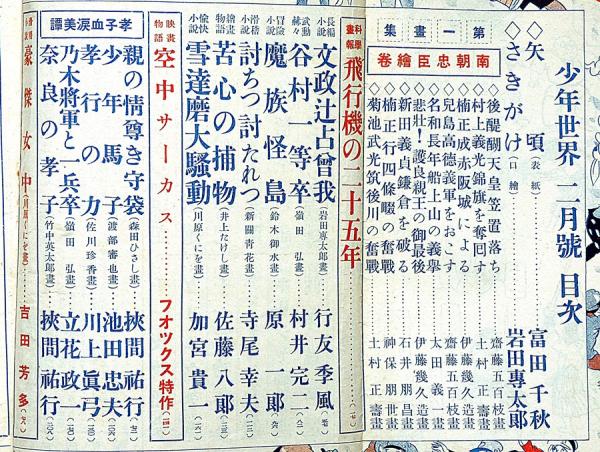 少年世界 二月號 目次
◇矢頃(表紙) 富田千秋
◇さきがけ(口繪) 岩田專太郎
第一畫集
南朝忠臣繪卷
後醍醐天皇笠置落ち 齋藤五百枝畫
村上義光錦旗を奪回す 土村正壽畫
楠正成赤阪城による 伊藤幾久造畫
兒島高德義軍をおこす 齋藤五百枝畫
名和長年船上山の義擧 太田義一畫
新田義貞鎌倉を破る 伊藤幾久造畫
悲壯!護良親王の御最後 石井朋昌畫
楠正行四條畷の奮戰 神保朋世畫
菊池武光筑後川の奮戰 土村正壽畫
科學畫報 飛行機の二十五年
長編小說 文政辻占曾我(岩田專太郎畫) 行友季風
武勳赫々 谷村一等卒(嶺田弘畫) 村井完二
冒險小說 魔族怪島(鈴木御水畫) 原一郎
滑稽小說 討ちつ討たれつ(新關靑花畫) 寺尾幸夫
繪畫物語 苦心の捕物(井上たけし畫) 佐藤八郎
愉快小說 雪達磨大騷動(川原くにを畫) 加宮貴一
映畫物語 空中サーカス フオツクス特作
孝子血淚美譚
親の情尊き守袋(森田ひさし畫) 挾間祐行
少年馬子(渡部審也畫) 池田忠夫
孝行の力(佐川珍香畫) 川上眞弓
乃木將軍と一兵卒(嶺田弘畫) 立花政一
奈良の孝子(竹中英太郎畫) 挾間祐行
豪傑女中(川原くにを畫) 吉田芳多